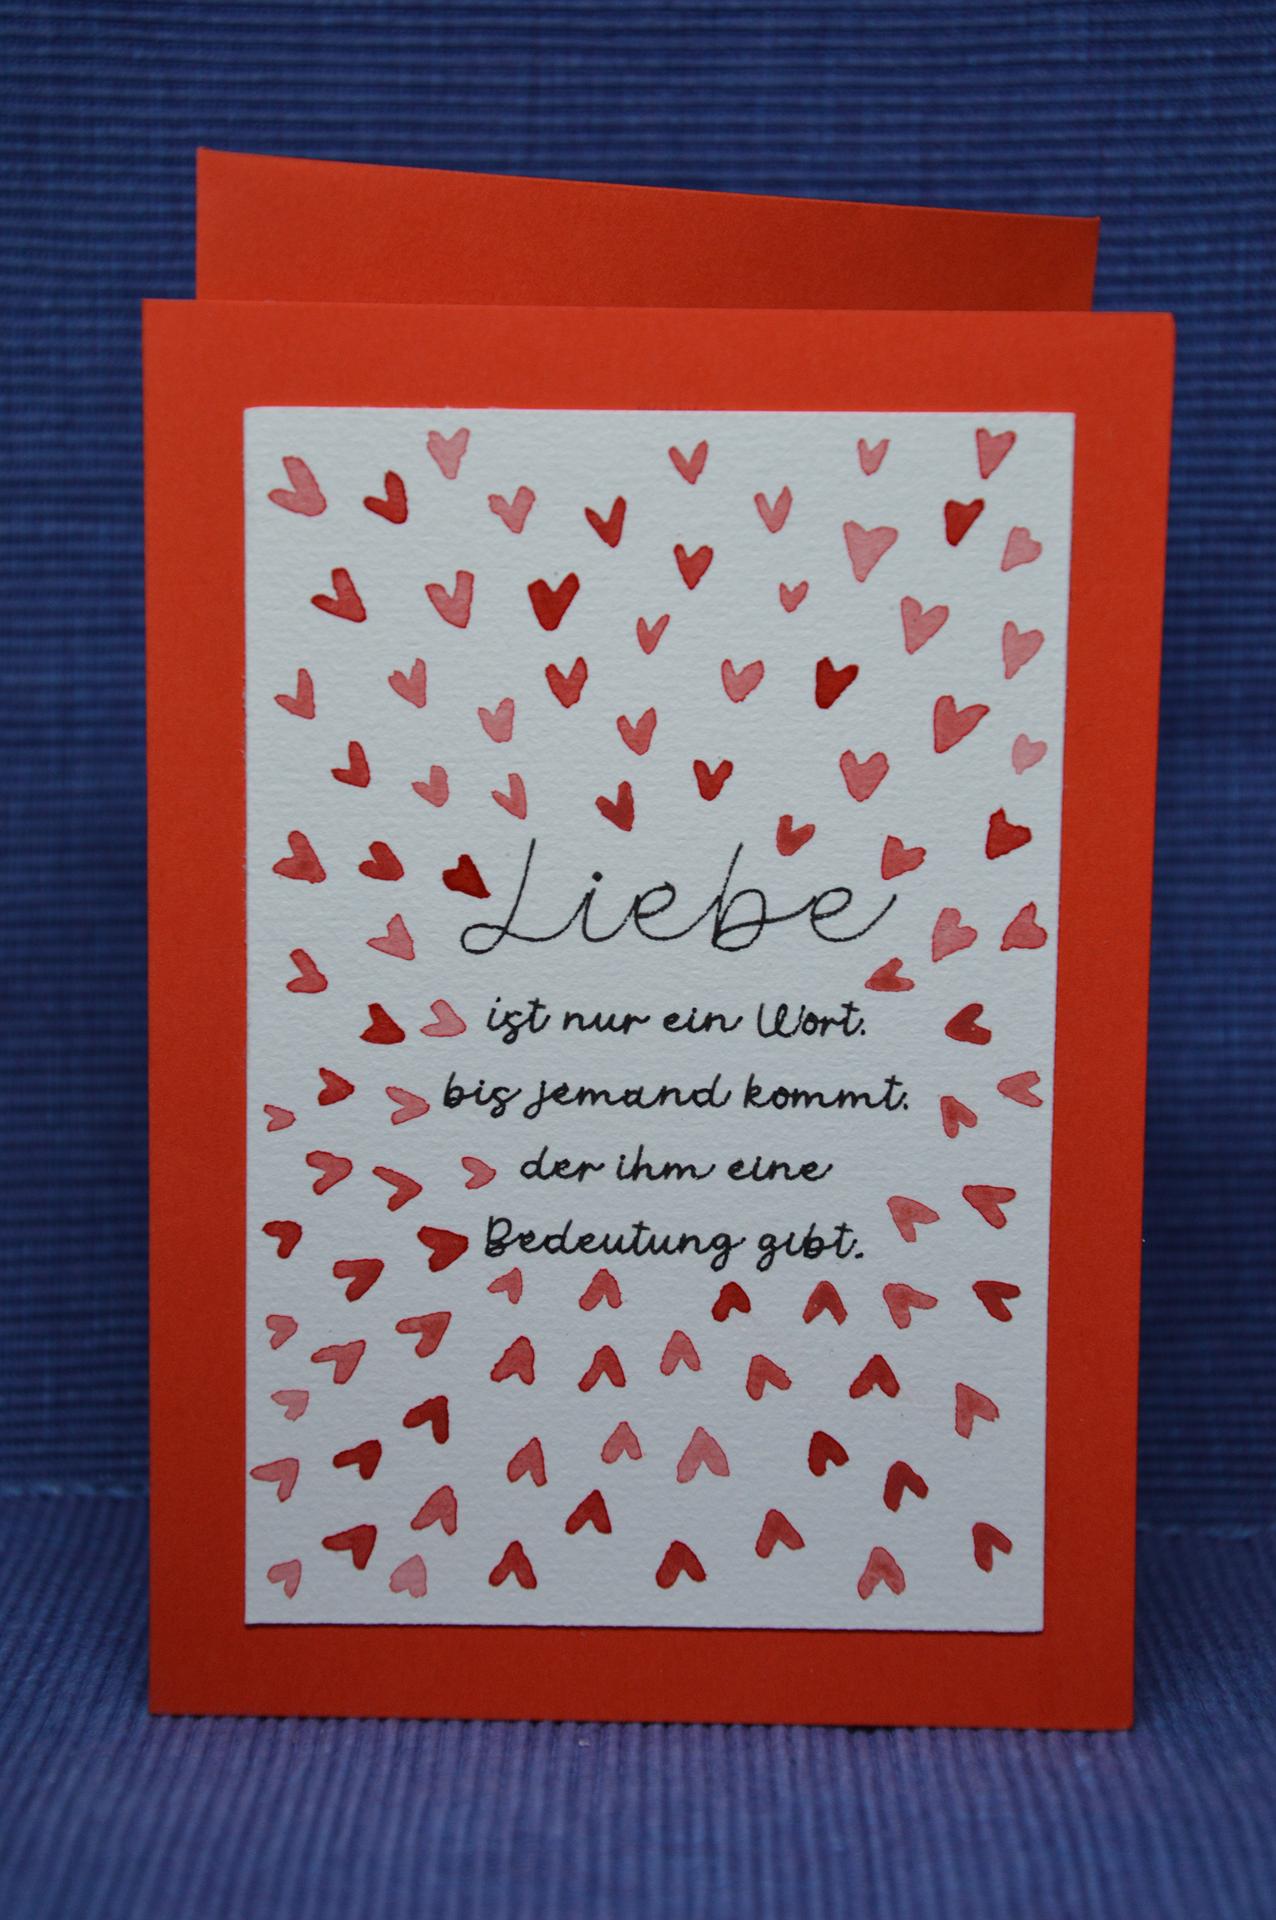 Liebe
ist nur ein Wort.
bis jemand kommt.
der ihm eine
Bedeutung gibt.